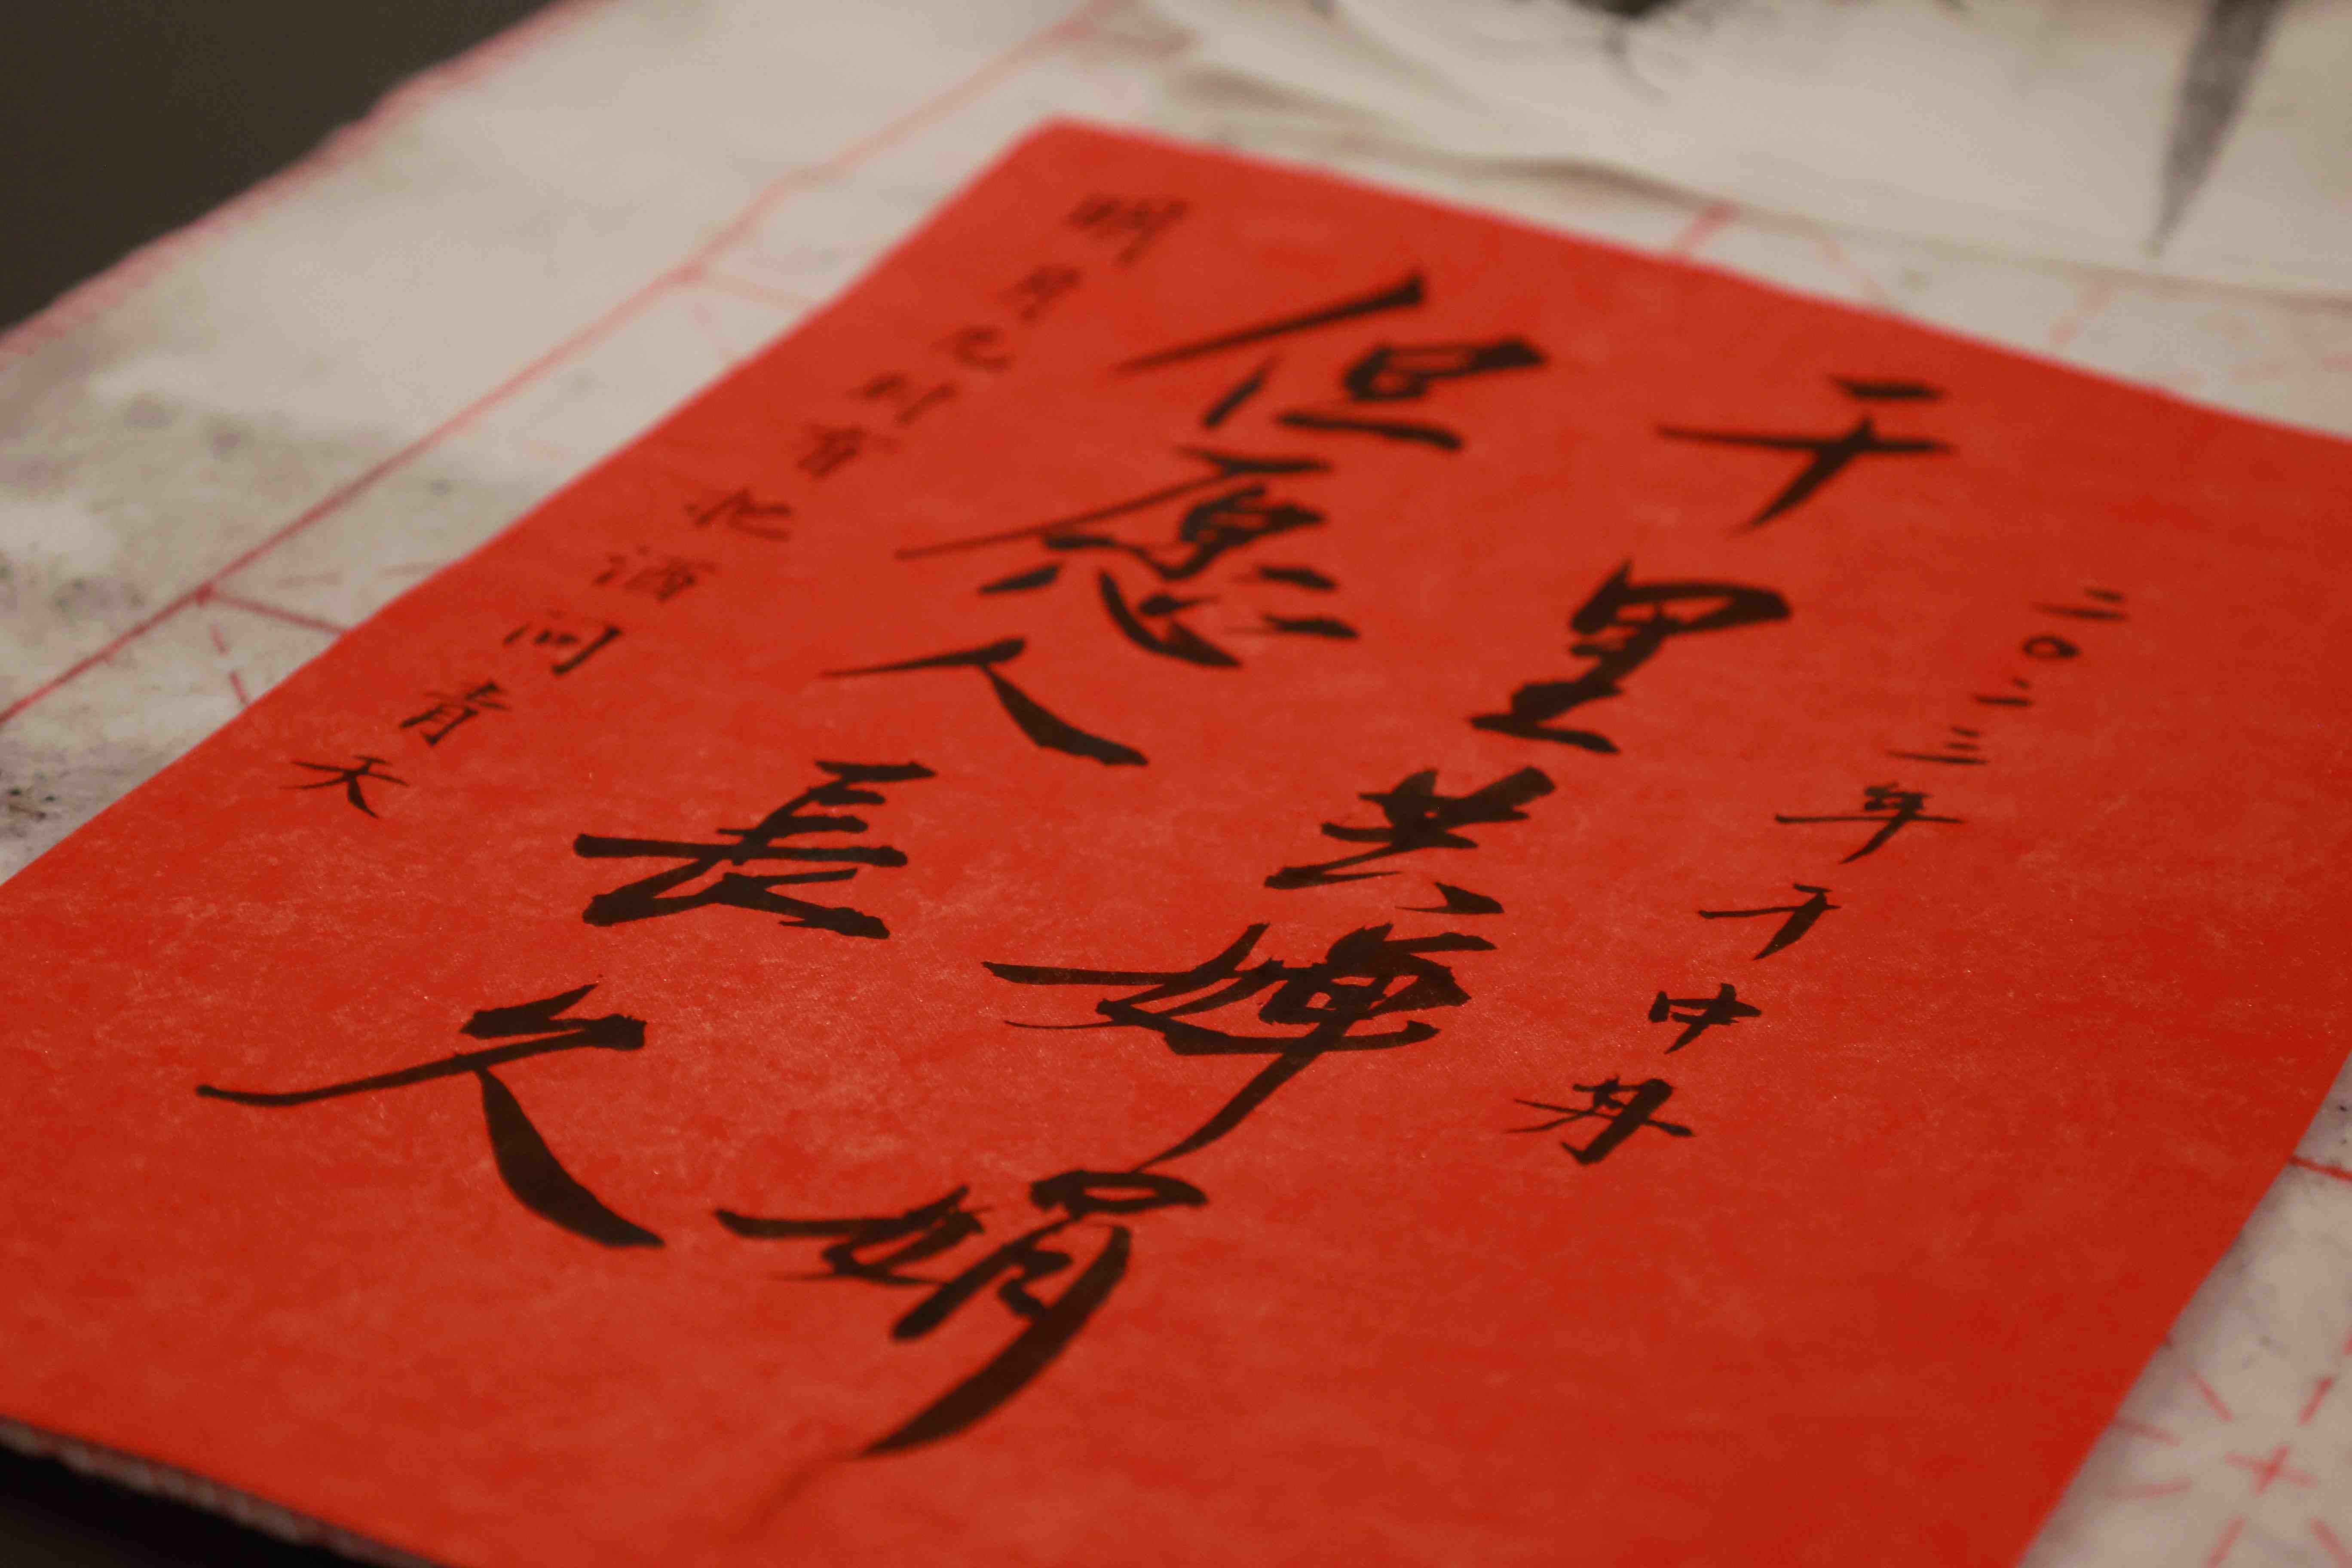 明月几时有把酒问青天
但愿人長久
千里共婵娟
二〇二三年于中